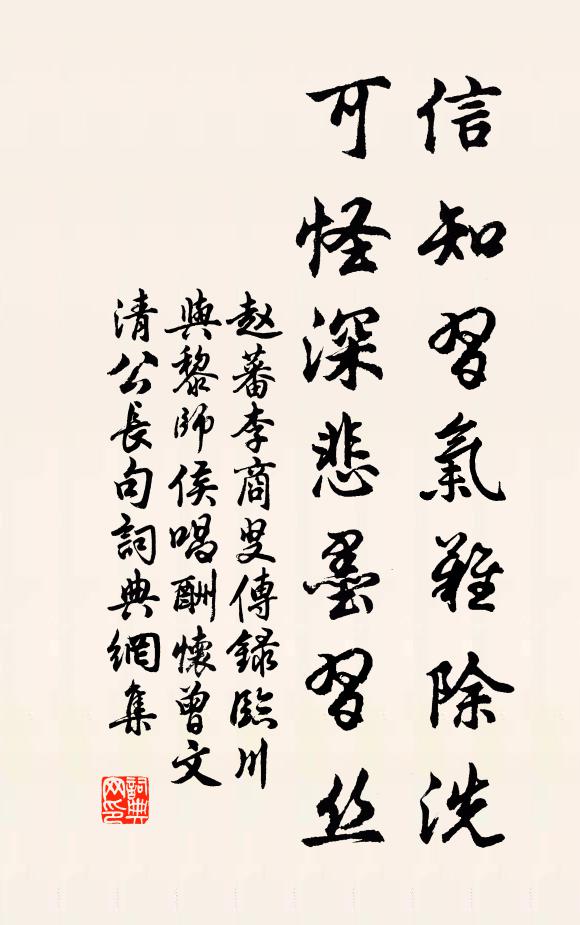 信知習氣難除洗
可怪深悲墨習丝
赵蕃李商叟傳録臨川
與黎師侯唱酬懷曾文
清公長句詞典網集
詞典网印